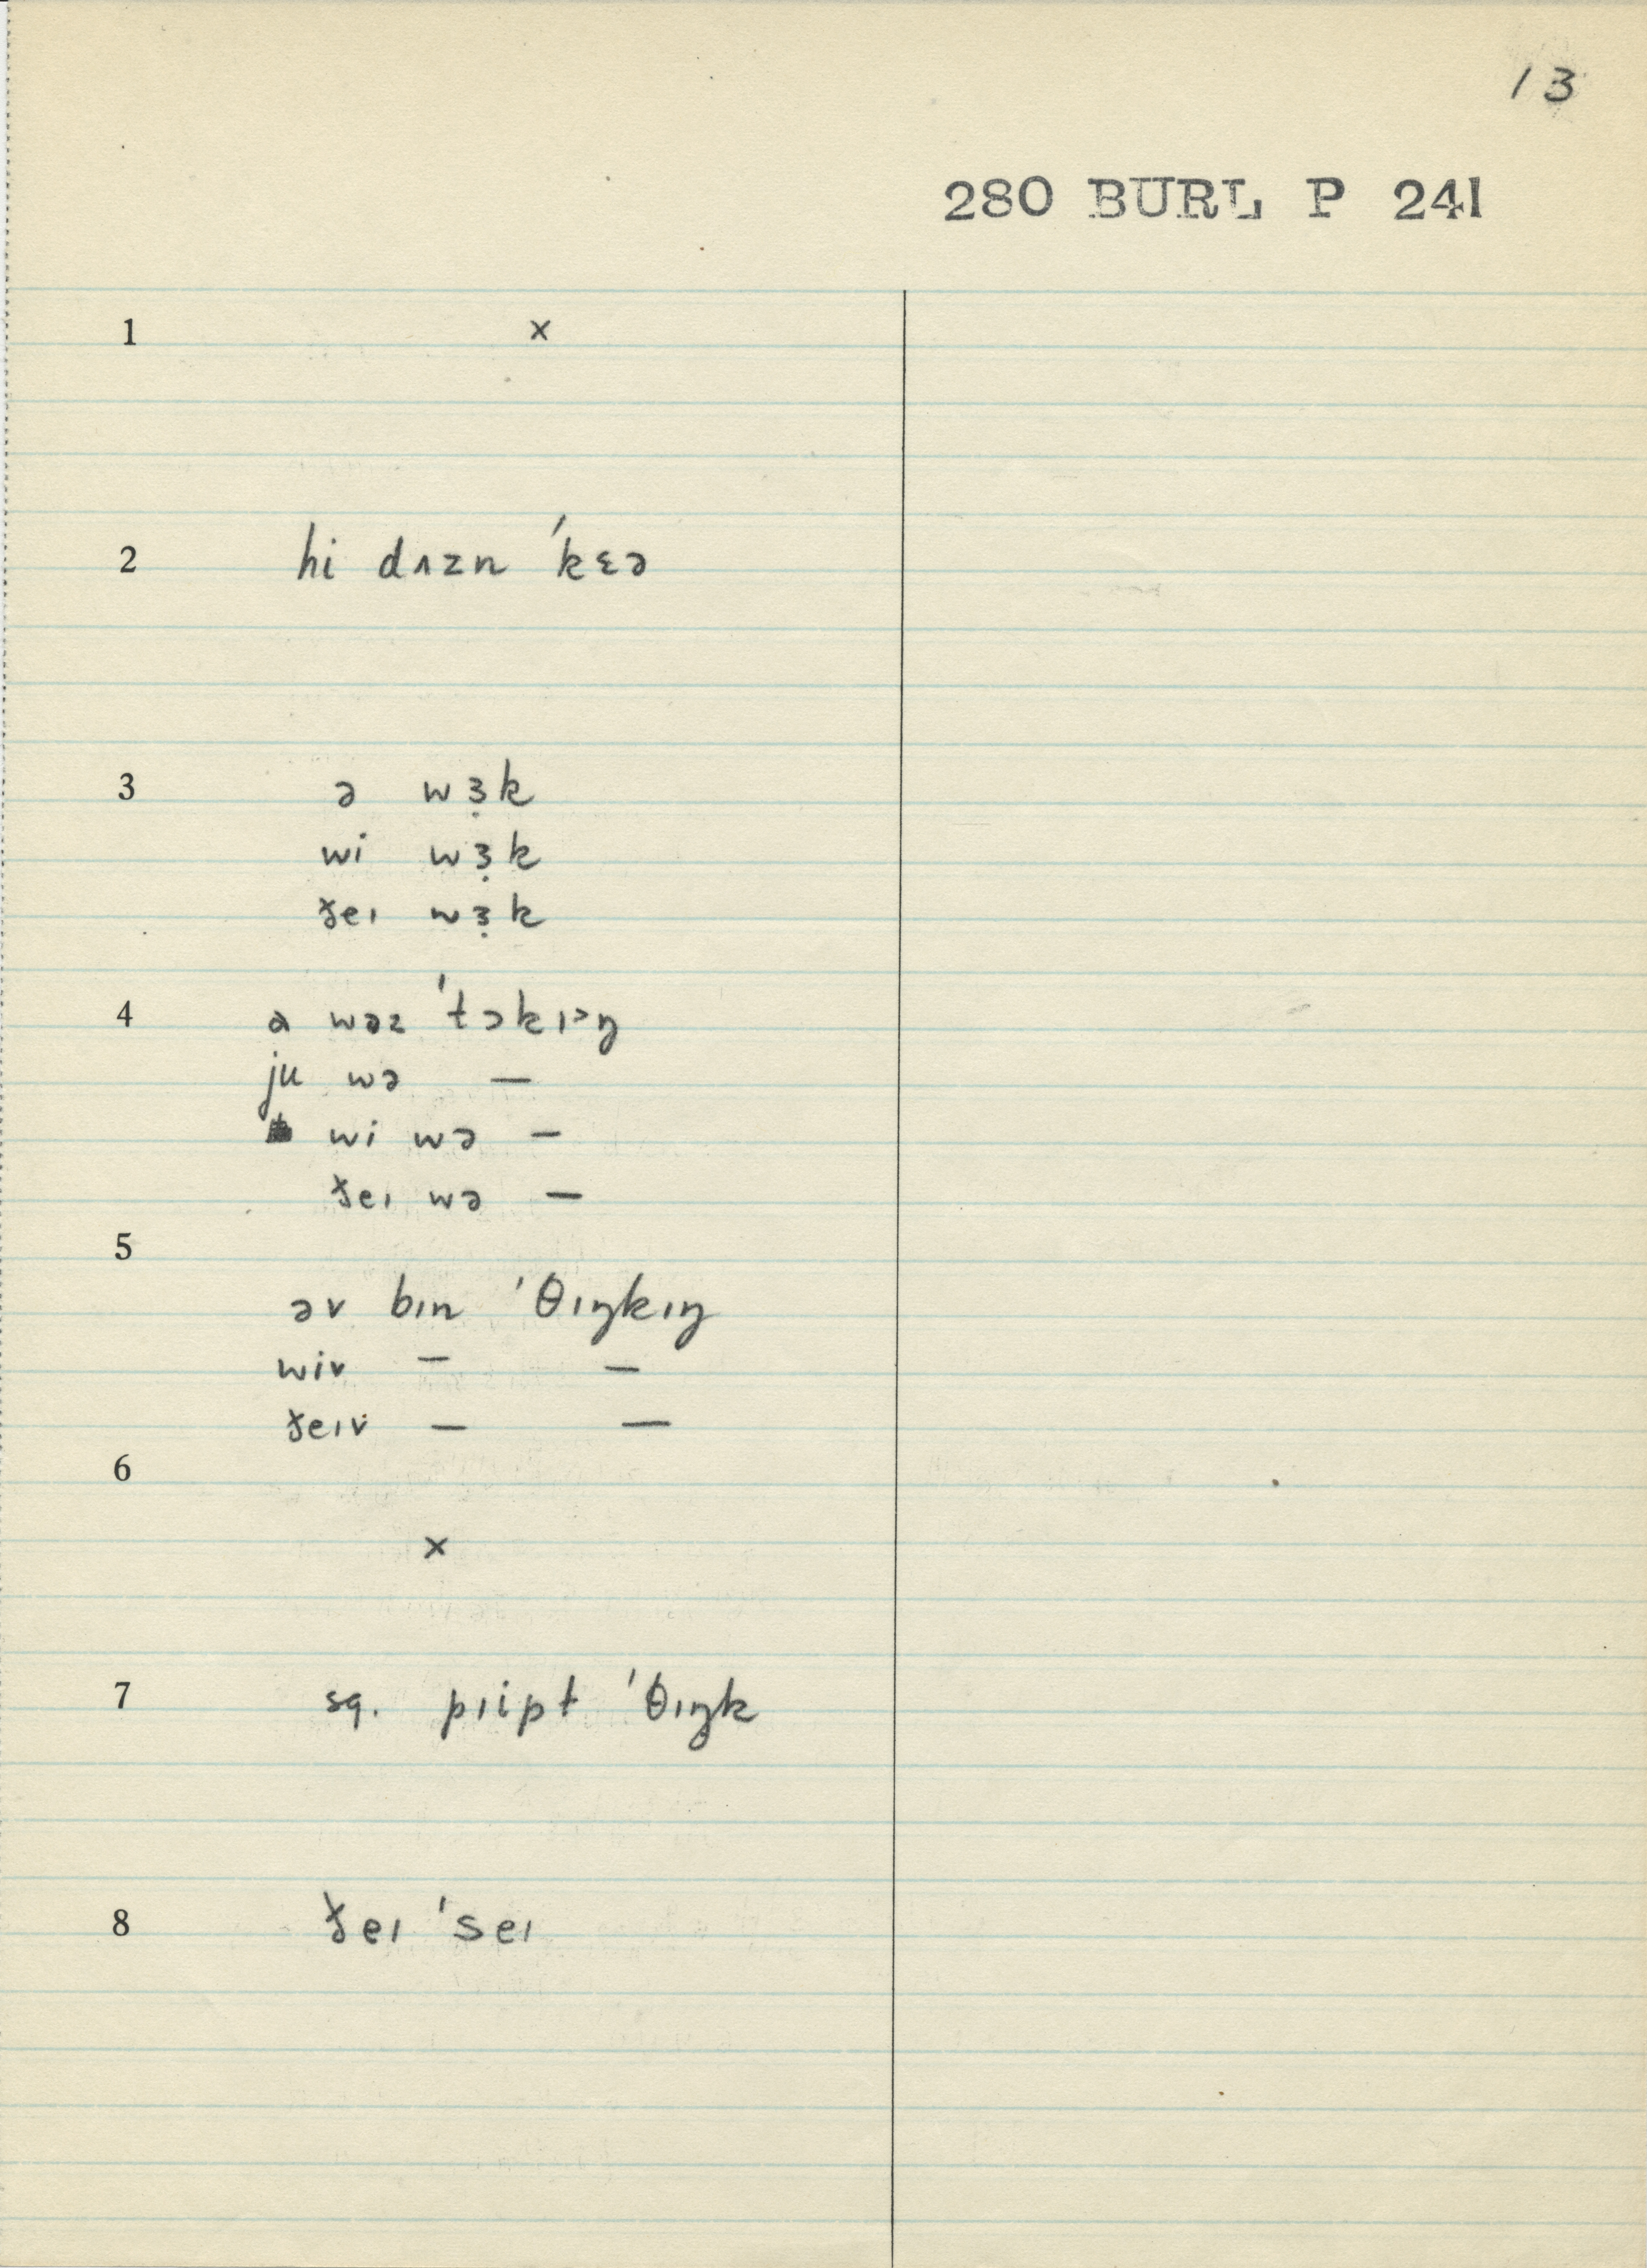 13
280 BURL P 241
1 ×
2 hi dʌzn ˈkɛə
3 ə wɜ̣k
wi wɜ̣k
ðeɪ wɜ̣k
4 a wəz ˈtɔkɪ˃ŋ
ju wə —
wi wə —
ðeɪ wə —
5
əv bɪn ˈθɪŋkɪŋ
wiv — —
ðeɪv — —
6
×
7 sq. pɪipt ˈθɪŋk
8 ðeɪ ˈseɪ